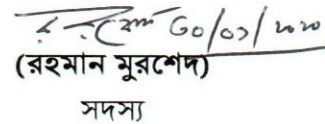 ৩০/০১/২০২০
(রহমান মুরশেদ)
সদস্য